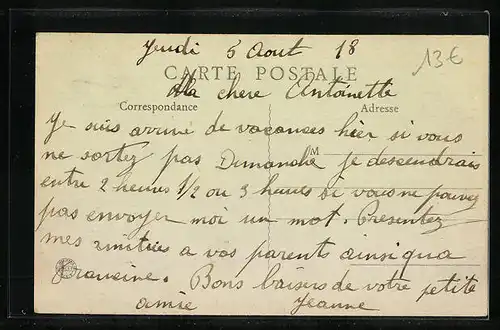 Jeudi 5 Aout 18
13€
CARTE POSTALE
Ma chere Antoinette
Correspondance Adresse
Je suis arrivé de vacances hier si vous
M
ne sortez pas Dimanche je descendrais
entre 2 heures 1/2 ou 3 heures si vous ne pouvez
pas envoyer moi un mot. Presentez
mes amitiés a vos parents ainsi qua
Francine. Bons baisers de votre petite
amie Jeanne